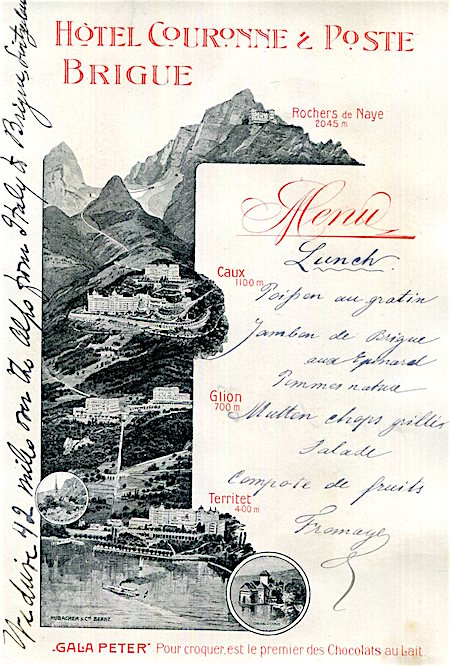 HÔTEL COURONNE & POSTE
BRIGUE
Rochers de Naye
2045 m
Menu
Lunch.
Caux
1100 m
Poisson au gratin
Jambon de Brigue
aux Epinard
Pommes natur
Glion
700 m
Mutton chops grillés
Salade
Compote de fruits
Territet
400 m
Fromage
HUBACHER & Cie BERNE
„GALA PETER" Pour croquer, est le premier des Chocolats au Lait
We drive 42 mills over the Alps from Italy to Brigue,